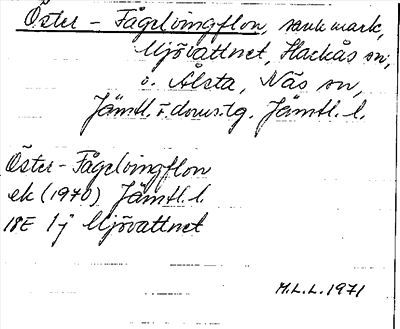 Öster-Fågelvingflon, sankmark,
Mjövattnet, Hackås sn,
o. Ålsta, Näs sn,
Jämtl. s. doms.tg. Jämtl. l.
Öster-Fågelvingflon
ek (1970) Jämtl. l.
18E 1j Mjövattnet
M.L.L. 1971